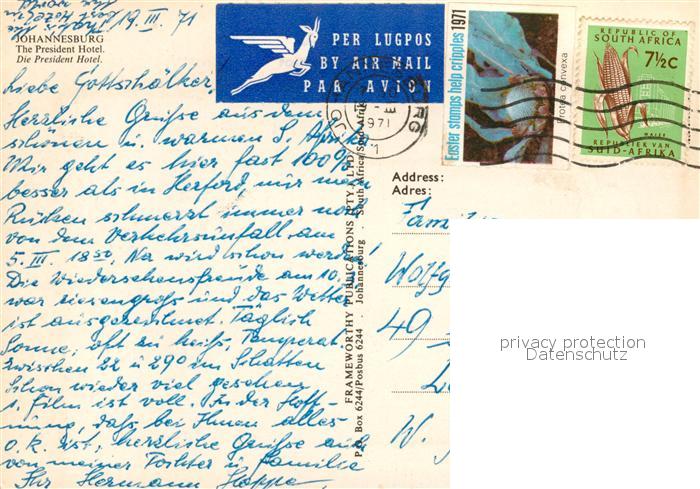 19. III. 71
JOHANNESBURG
The President Hotel.
Die President Hotel.
Liebe Gottschälker,
Herzliche Grüsse aus dem
schönen u. warmen S. Afrika
Mir geht es hier fast 100%
besser als in Herford, nur mein
Rücken schmerzt immer noch
von dem Verkehrsunfall am
5. III. 18 50. Na wird schon werden!
Die Wiedersehensfreude am 10.
war riesengroß und das Wetter
ist ausgezeichnet. Täglich
Sonne, oft zu heiß, Temperat.
zwischen 22 u 29° im Schatten
Schon wieder viel gesehen
1. Film ist voll. In der Hoff-
nung, daß bei Ihnen alles
o.k. ist, herzliche Grüße auch
von meiner Tochter u. Familie
Ihr Hermann Hoppe
PER LUGPOS
BY AIR MAIL
PAR AVION
Easter stamps help cripples 1971
Protea convexa
REPUBLIC OF
SOUTH AFRICA
7½c
REPUBLIEK VAN
SUID-AFRIKA
1971
FRAMEWORTHY PUBLICATIONS (PTY.) LTD.
P.O. Box 6244/Posbus 6244 Johannesburg South Africa/Suid-Afrika
Address:
Adres:
Fam
Wolfg
49
W.
privacy protection
Datenschutz